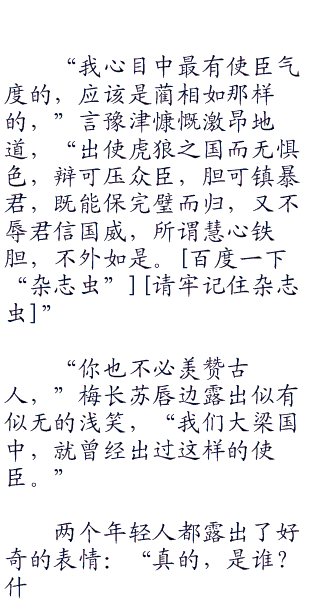 “我心目中最有使臣气
度的，应该是蔺相如那样
的，”言豫津慷慨激昂地
道，“出使虎狼之国而无惧
色，辩可压众臣，胆可镇暴
君，既能保完璧而归，又不
辱君信国威，所谓慧心铁
胆，不外如是。[百度一下
“杂志虫”][请牢记住杂志
虫]”
“你也不必羡赞古
人，”梅长苏唇边露出似有
似无的浅笑，“我们大梁国
中，就曾经出过这样的使
臣。”
两个年轻人都露出了好
奇的表情：“真的，是谁？
什